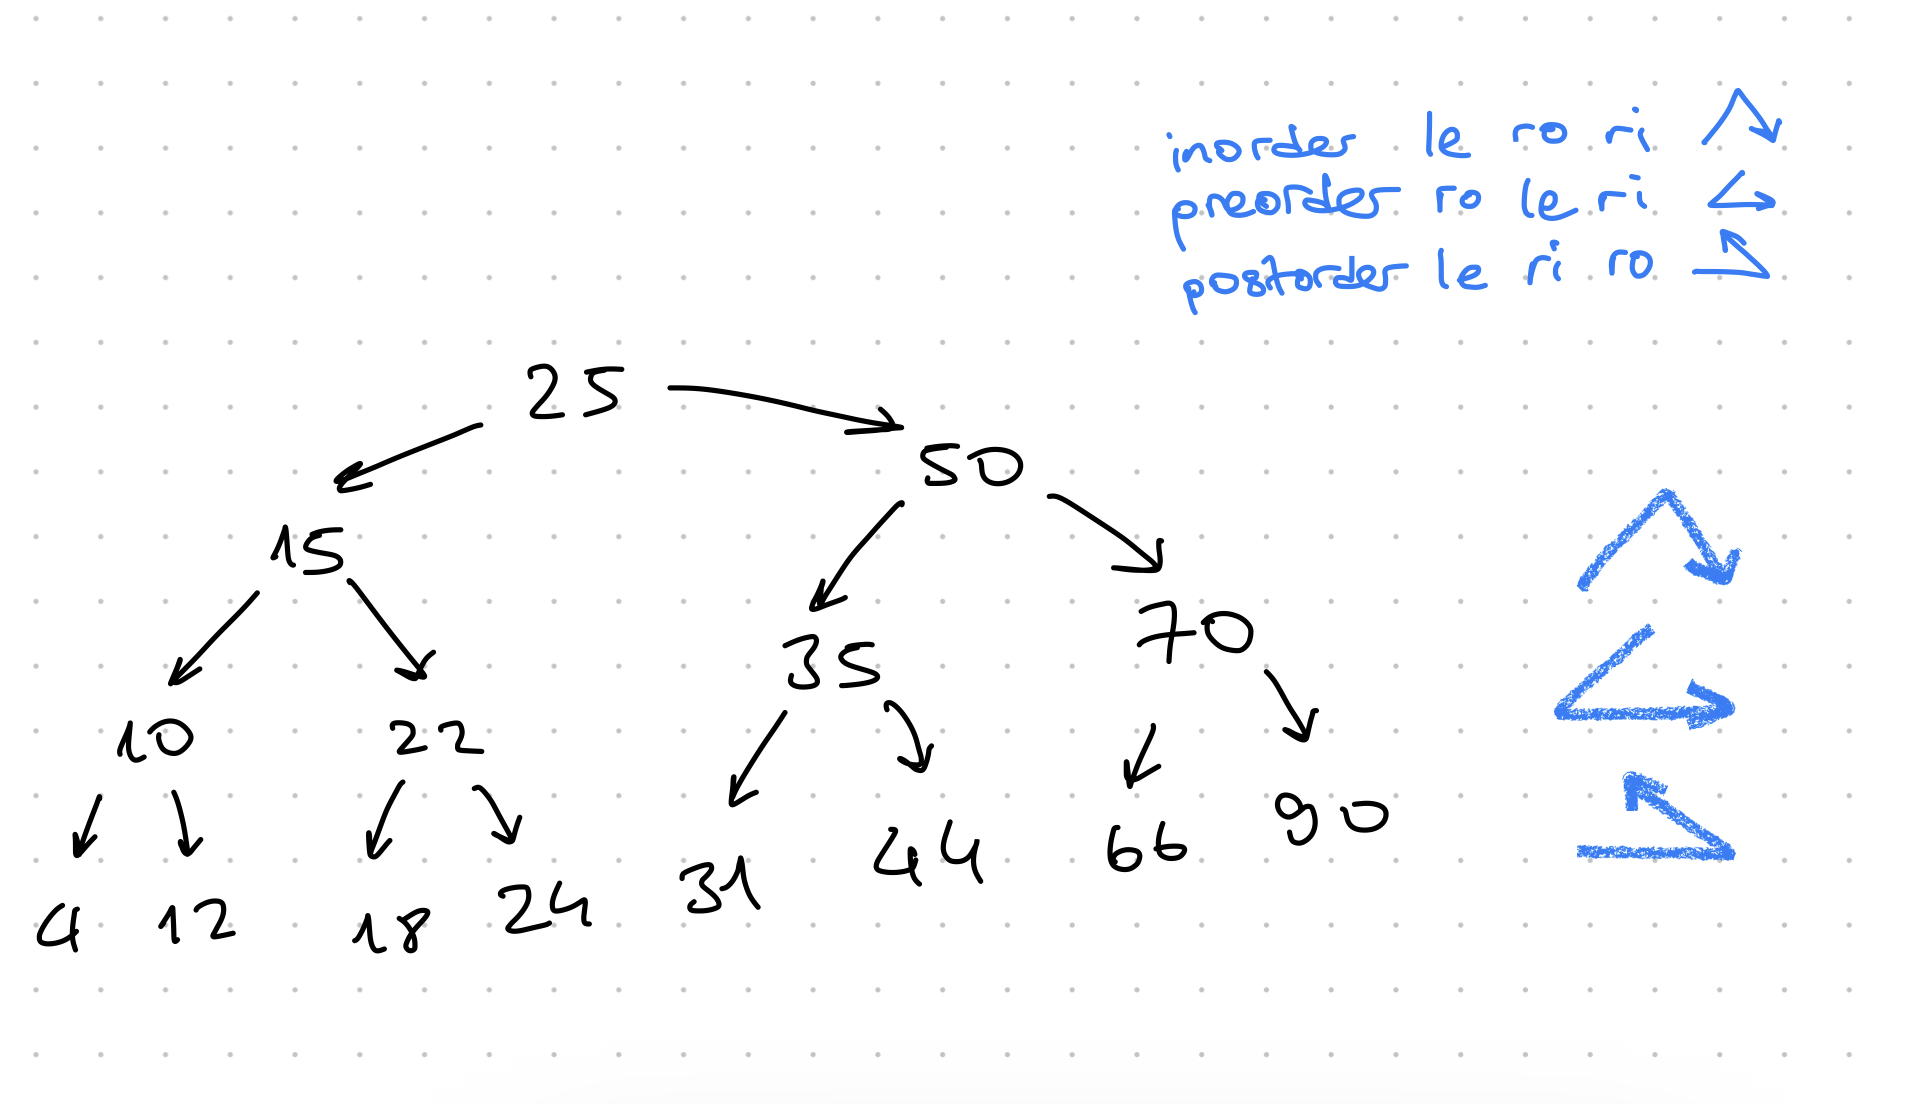 inorder le ro ri
preorder ro le ri
postorder le ri ro
25
50
15
35 70
10 22
4 12 18 24 31 44 66 90